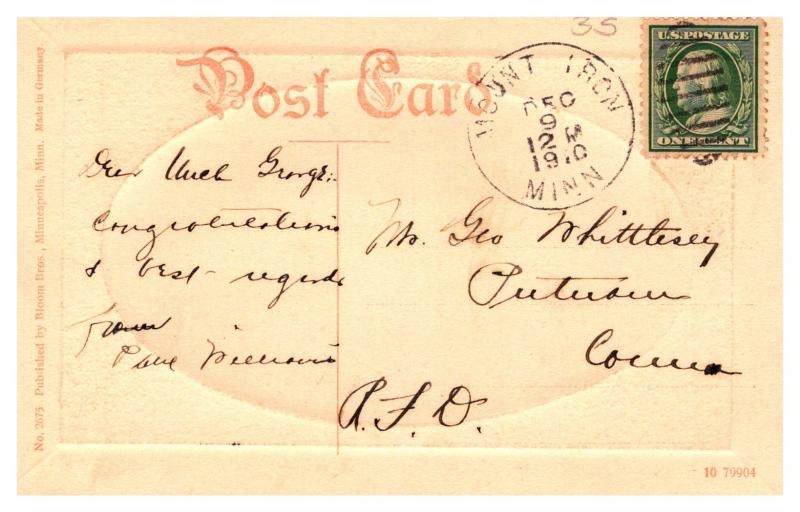 35
U.S. POSTAGE
ONE CENT
Post Card
MOUNT IRON
DEC
9
12 M
1910
MINN
Dear Uncle George:
Congratulations
& best regards
from
Paul
Mr. Geo Whittlesey
Putnam
Conn
R.F.D.
No. 2675 Published by Bloom Bros., Minneapolis, Minn. Made in Germany
10 79904